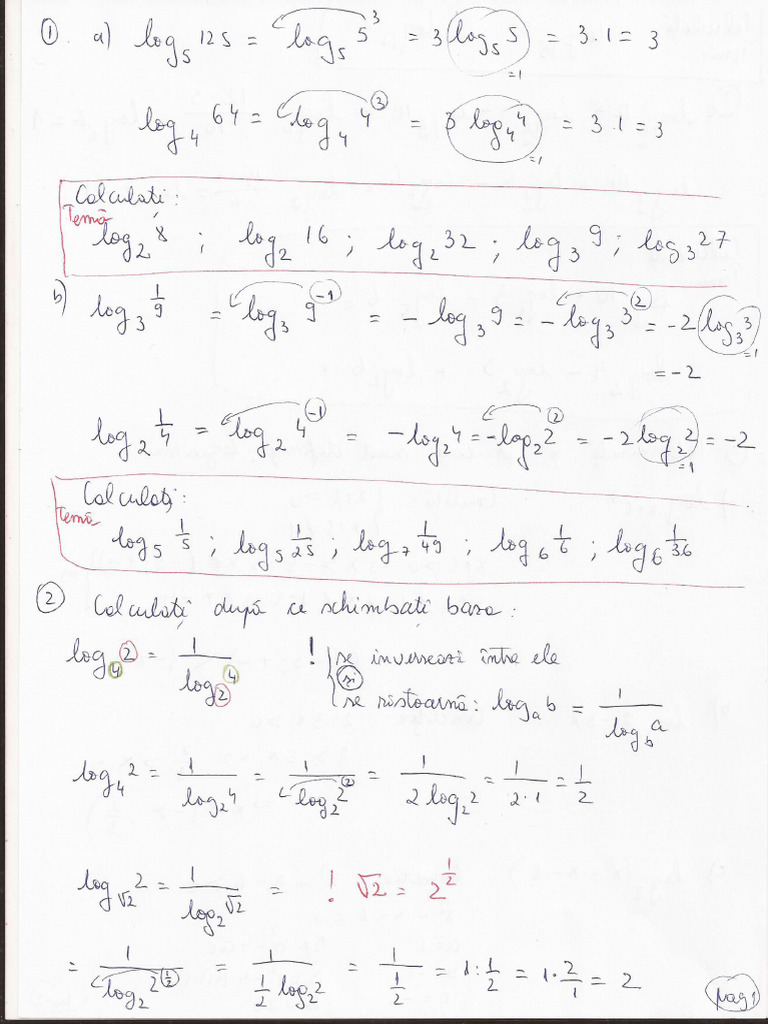 ① a) log₅ 125 = log₅ 5³ = 3 log₅ 5 = 3·1 = 3
=1
log₄ 64 = log₄ 4³ = 3 log₄ 4 = 3·1 = 3
=1
Calculați:
Temă
log₂ 8 ; log₂ 16 ; log₂ 32 ; log₃ 9 ; log₃ 27
b) log₃ 1/9 = log₃ 9⁻¹ = - log₃ 9 = - log₃ 3² = -2 log₃ 3
=1
= -2
log₂ 1/4 = log₂ 4⁻¹ = -log₂ 4 = -log₂ 2² = -2 log₂ 2 = -2
=1
Calculați:
Temă
log₅ 1/5 ; log₅ 1/25 ; log₇ 1/49 ; log₆ 1/6 ; log₆ 1/36
② Calculați după ce schimbați baza:
log₄ 2 = 1/log₂ 4 ! se inversează între ele
și
se răstoarnă: logₐ b = 1/log_b a
log₄ 2 = 1/log₂ 4 = 1/log₂ 2² = 1/2 log₂ 2 = 1/2·1 = 1/2
log_√2 2 = 1/log₂ √2 = ! √2 = 2^(1/2)
= 1/log₂ 2^(1/2) = 1/(1/2 log₂ 2) = 1/(1/2) = 1:1/2 = 1·2/1 = 2
pag 1